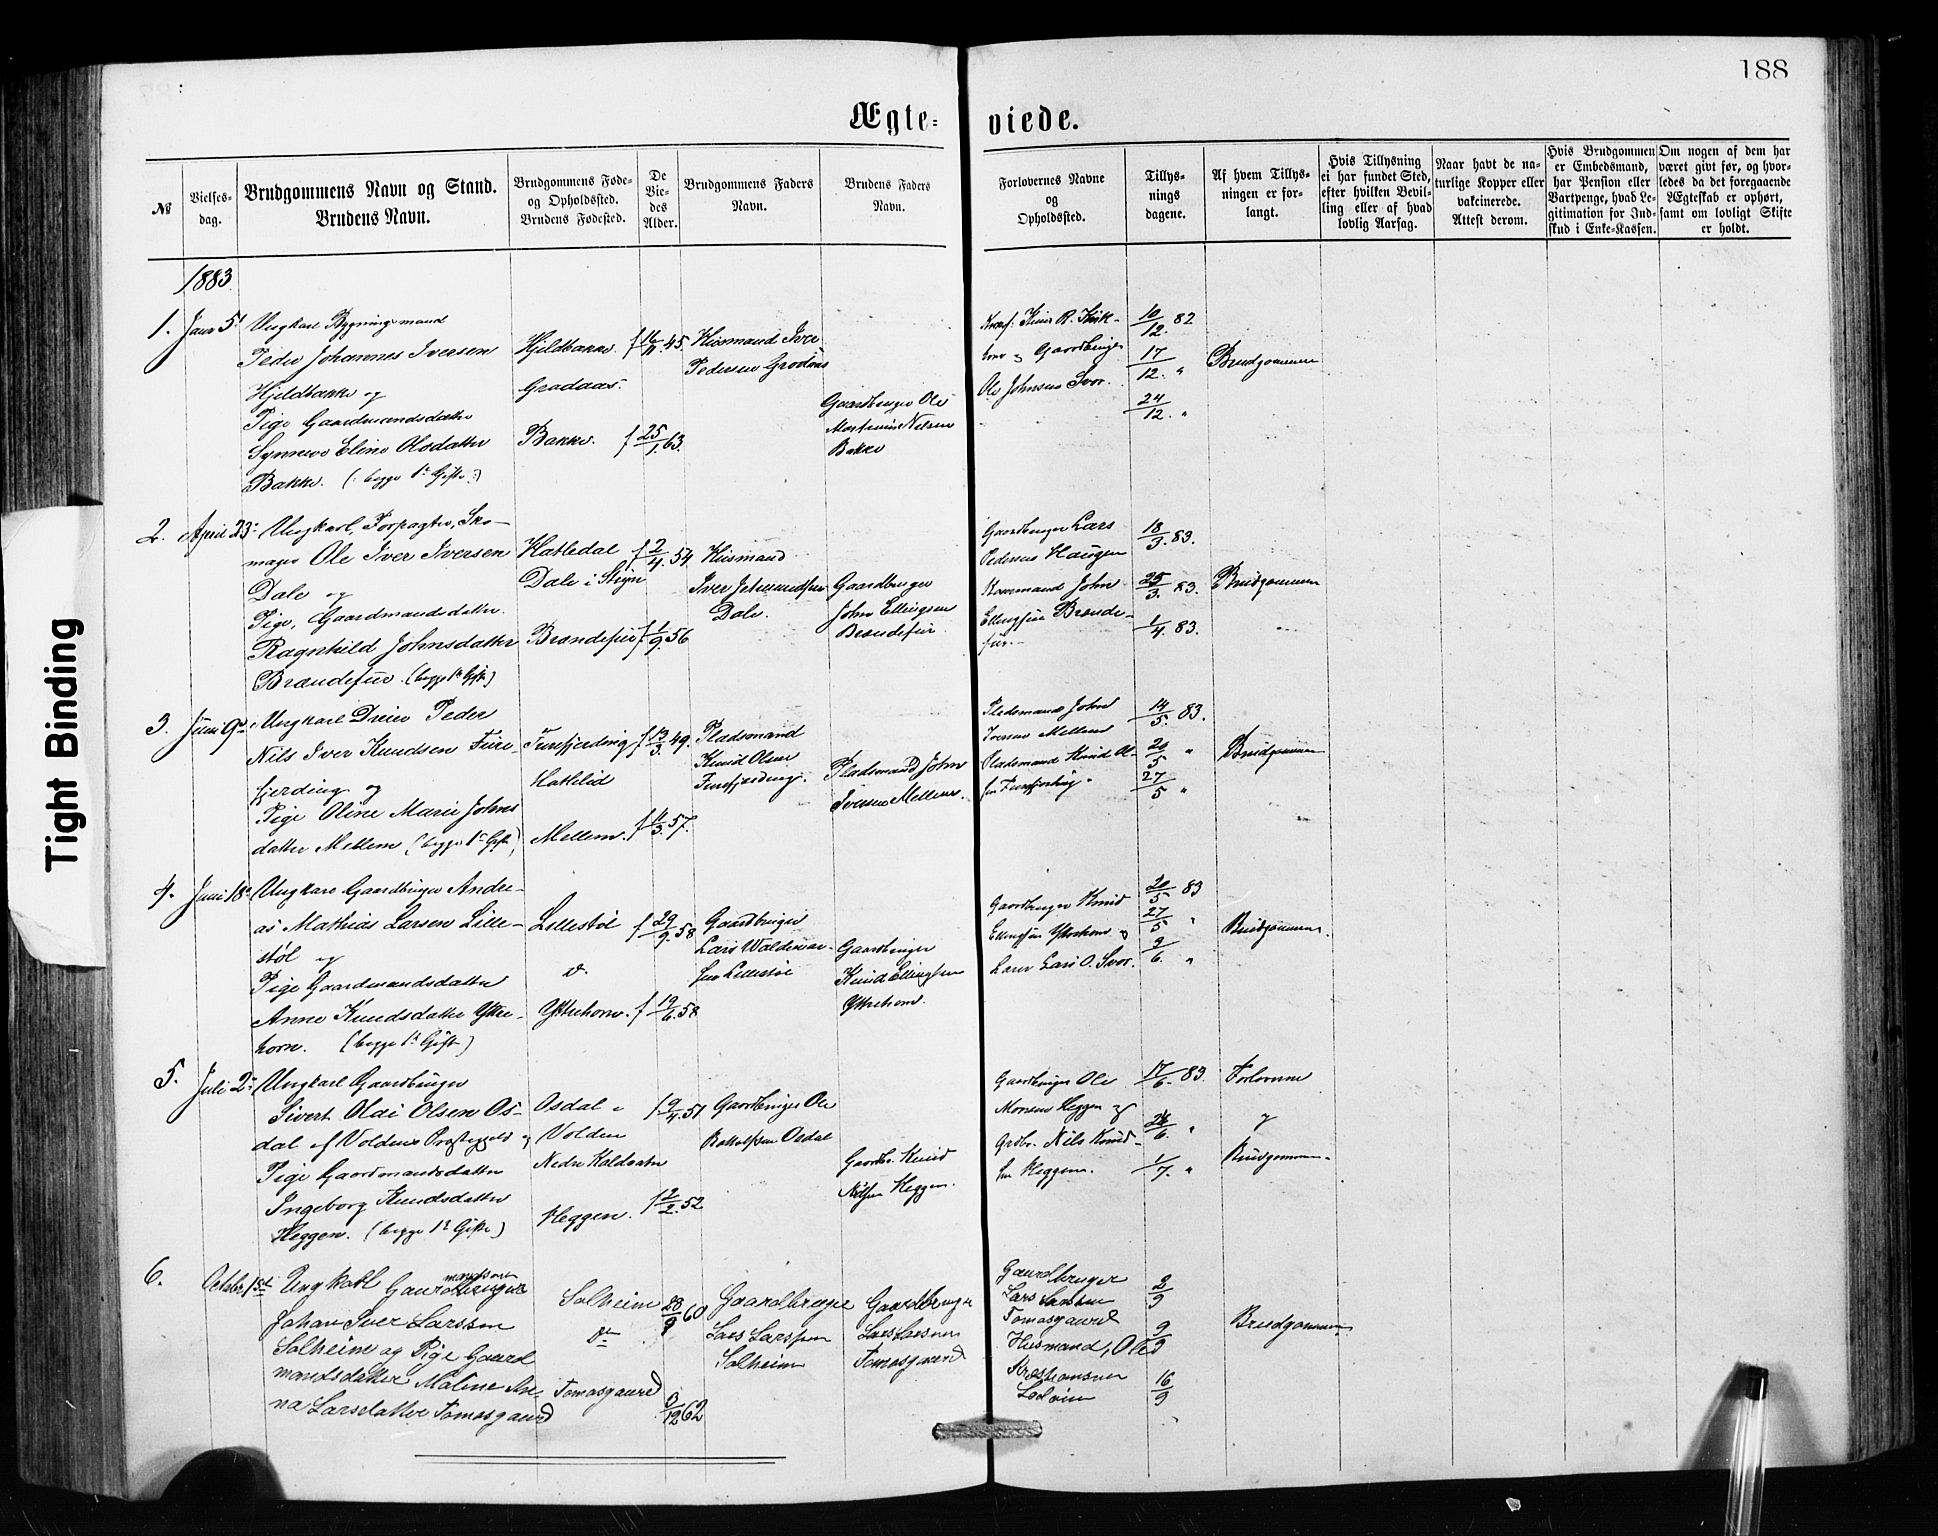 188
Ægte-
viede.
№
Vielses-
dag.
Brudgommens Navn og Stand.
Brudens Navn.
Brudgommens Føde-
og Opholdssted.
Brudens Fødested.
De
Vie-
des
Alder.
Brudgommens Faders
Navn.
Brudens Faders
Navn.
Forlovernes Navne
og
Opholdssted.
Tillys-
nings
dagene.
Af hvem Tillys-
ningen er for-
langt.
Hvis Tillysning
ei har fundet Sted,
efter hvilken Bevil-
ling eller af hvad
lovlig Aarsag.
Naar havt de na-
turlige Kopper eller
vakcinerede.
Attest derom.
Hvis Brudgommen
er Embedsmand,
har Pension eller
Vartpenge, hvad Le-
gitimation for Ind-
skud i Enke-Kassen.
Om nogen af dem har
været givt før, og hvor-
ledes da det foregaaende
Ægteskab er ophørt,
samt om lovligt Skifte
er holdt.
1883.
1.
Janr 5t
Ungkarl Bygningsmand
Peder Johannes Iversen
Hjeldbakke og
Pige Gaardmandsdatter
Synneve Eline Olsdatter
Bakke. (: begge 1ste Gifte :)
Hjeldbakke
Gradaas.
Bakke.
f 16/11 45.
f 25/1 63.
Husmand Iver
Pedersen
Gaardbruger Ole
Nilsen
Bakke
og Gaardbruger
Ole Johnsen Svor.
10/12. 82
17/12. "
24/12. "
Brudgommen
2.
April 23
Ungkarl, Forpagter, Sko-
mager Ole Iver Iversen
Dale og
Pige, Gaardmandsdatter
Ragnhild Johnsdatter
Brændefur. (begge 1ste Gifte)
Hatledal
Dale i Stryn
Brændefur
f 2/4. 54
f 1/9. 56
Husmand
Iver
Dale.
Gaardbruger
John Ellingsen
Brændefur.
Gaardbruger Lars
Pedersen Haugen
John
Ellingsen Brænde-
fur.
18/3. 83.
25/3. 83.
1/4. 83.
Brudgommen
3.
Juni 9
Ungkarl Dreier Peder
Nils Iver Knudsen Fure-
fjerding og
Pige Oline Marie Johns
datter Mellem (begge 1ste Gifte)
Furefjerding
Hatlelid
Mellem.
f 13/3. 49.
f 11/3. 57.
Pladsmand
Knud Olsen
Furefjerding.
Pladsmand John
Iversen Mellem.
Pladsmand John
Iversen Mellem
Pladsmand Knud Ol-
sen Furefjerding
14/5. 83.
20/5 "
27/5 "
Brudgommen
4.
Juni 18
Ungkarl Gaardbruger Andre-
as Mathias Larsen Lille-
støl og
Pige Gaardmandsdatter
Anne Knudsdatter Ytre-
horn. (begge 1ste Gifte)
Lillestøl
Ytrehorn.
f 29/9. 58
f 19/6. 58
Gaardbruger
Lars Waldemar-
sen Lillestøl
Gaardbruger
Knud Ellingsen
Ytrehorn.
Gaardbruger Knud
Ellingsen Ytrehorn og
Lærer Lars O. Svor.
20/5 83
27/5 "
2/6. "
Brudgommen.
5.
Juli 2
Ungkarl Gaardbruger
Sivert Olai Olsen Os-
dal af Voldens Præstegjeld og
Pige Gaardmandsdatter
Ingeborg Knudsdatter
Heggen. (begge 1ste Gifte)
Osdal i
Volden
Nedre
Heggen.
f 9/4. 51
f 2/2. 52
Gaardbruger Ole
Osdal
Gaardbr. Knud
Nilsen Heggen.
Gaardbruger Ole
Monsen Heggen og
Grdbr. Nils Knud-
sen Heggen.
17/6. 83.
24/6. "
1/7. "
Forloverne
og
Brudgommen
6.
October 1st
Ungkarl Gaard mandssøn
Johan Iver Larssen
Solheim og Pige Gaard
mandsdatter Maline An-
na Larsdatter Tomasgaard
Solheim
Tomasgaard
28/9 60
3/12 62
Gaardbruger
Lars Larssen
Solheim
Gaardbruger
Lars Larssen
Tomasgaard
Gaardbruger
Lars Larssen
Tomasgaard
Husmand, Ole
Kristiansen
2/9
9/9
16/9
Brudgommen
Tight Binding